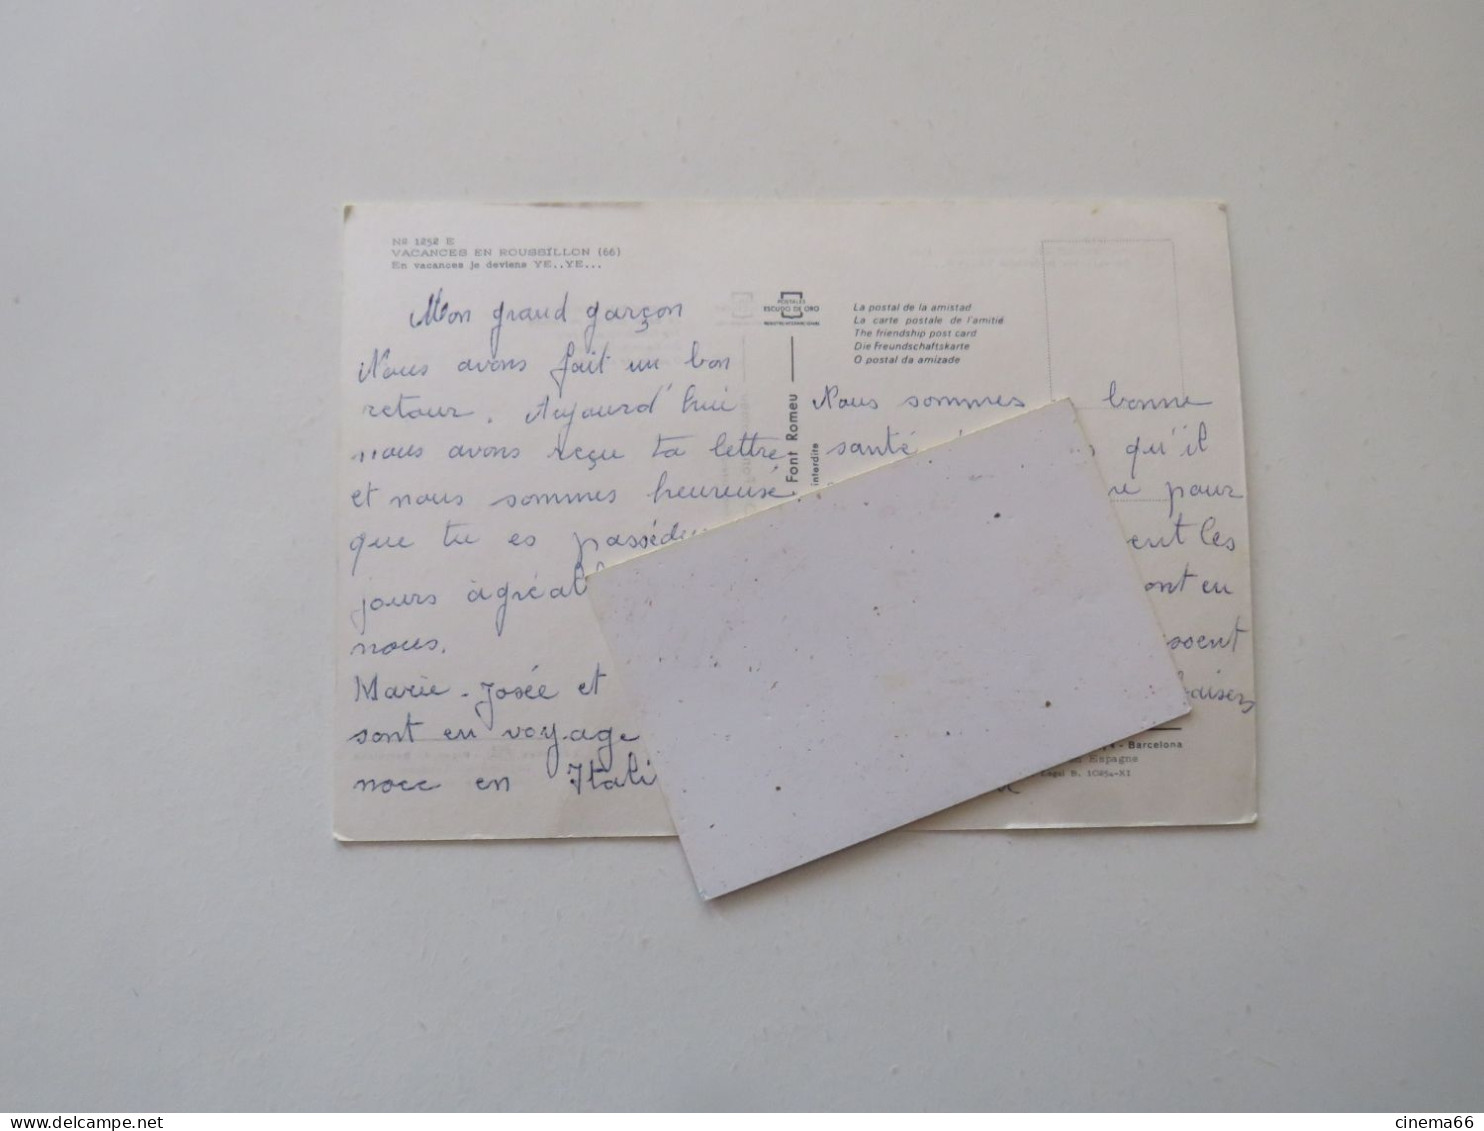 Nº 1252 E
VACANCES EN ROUSSILLON (66)
En vacances je deviens YE..YE...
Mon grand garçon
Nous avons fait un bon
retour. Aujourd'hui
nous avons reçu ta lettre
et nous sommes heureuse
que tu es passé
jours agréab
nous.
Marie-Josée et
sont en voyage
noce en Itali
POSTALES
ESCUDO DE ORO
La postal de la amistad
La carte postale de l'amitié
The friendship post card
Die Freundschaftskarte
O postal da amizade
Font Romeu
interdite
Nous sommes bonne
santé qu'il
re pour
ent les
ont en
ssent
baisers
- Barcelona
Espagne
Legal B. 10254-XI
cinema66